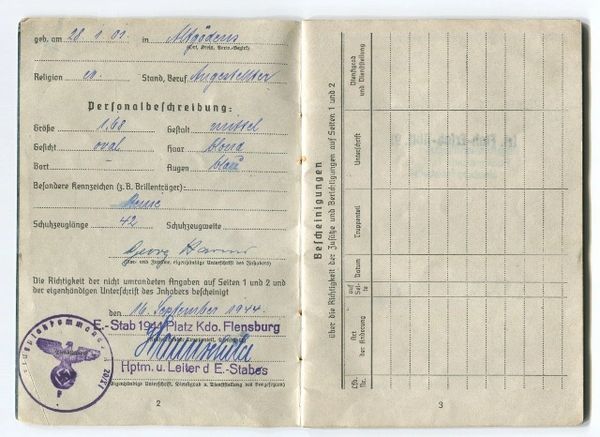 geb. am 28.1.01. in Altgödens
(Ort, Kreis, Verw.-Bezirk)
Religion ev. Stand, Beruf Angestellter
Personalbeschreibung:
Größe 1,68 Gestalt mittel
Gesicht oval Haar blond
Bart – Augen blau
Besondere Kennzeichen (z. B. Brillenträger):
Schuhzeuglänge 42 Schuhzeugweite
Georg
(Vor- und Zuname, eigenhändige Unterschrift des Inhabers)
Die Richtigkeit der nicht umrandeten Angaben auf Seiten 1 und 2 und
der eigenhändigen Unterschrift des Inhabers bescheinigt
den 16. September 1944.
E.-Stab 1944 Platz Kdo. Flensburg
Hptm. u. Leiter d E.-Stabes
(Eigenhändige Unterschrift, Dienstgrad u. Dienststellung des Vorgesetzten)
2
Bescheinigungen
über die Richtigkeit der Zusätze und Berichtigungen auf Seiten 1 und 2
Dienstgrad und Dienststellung
Unterschrift
Truppenteil
Datum
auf Seite
Art der Änderung
Lfd. Nr.
3